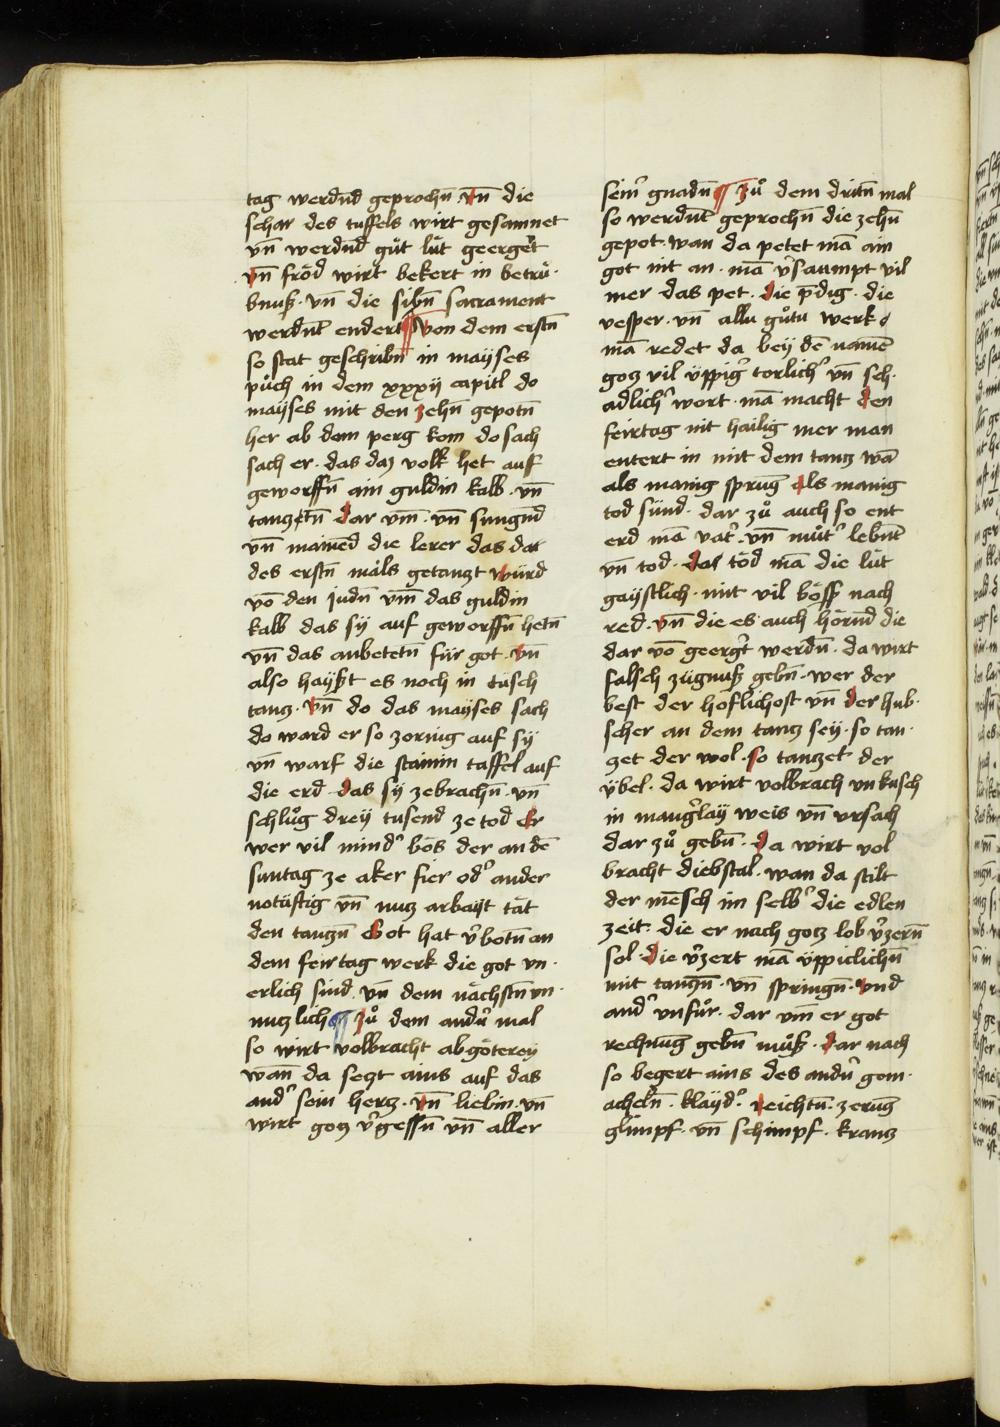 tag werdnd geprochn̄. Vn̄ die
schar des tuffels wirt gesamnet
vn̄ werdnd gůt lüt geergert
Vn̄ fröd wirt bekert in betrü-
bnuß. vn̄ die sibn̄ sacrament
werdnt endert ¶ Von dem erstn̄
so stat geschribn̄ in mayses
půch in dem xxxij capitl do
mayses mit den zehn̄ gepotn̄
her ab dem perg kom do sach
sach er. das daz volk het auf
geworffn̄ ain guldin kalb. vn̄
tanzetn̄ dar vm̄. vn̄ sungnd
vn̄ mained die lerer das dar
des erstn̄ mäls getanzt würd
vō den judn̄ vm̄ das guldin
kalb das sy auf geworffn̄ hetn̄
vn̄ das anbetetn̄ für got. Vn̄
also hayßt es noch in tüsch
tanz. Vn̄ do das mayses sach
do ward er so zornig auf sy
vn̄ warf die stainin taffel auf
die erd das sy zebrachn̄. vn̄
schlůg drey tusend ze tod Er
wer vil mind' bös der an dē
suntag ze aker fier od' ander
notüftig vn̄ nuz arbayt tät
den tanzn̄ Got hat v'botn̄ an
dem feirtag werk die got vn-
erlich sind. vn̄ dem nächstn̄ vn-
nuzlich ¶ Zů dem andn' mal
so wirt volbracht abgöterey
wān da sezt ains auf das
and' sein herz. Vn̄ liebin. vn̄
wirt gotz v'gessn̄ vn̄ aller
sein' gnadn̄ ¶ Zů dem dritn̄ mal
so werdnt geprochn̄ die zehn̄
gepot. wan da petet mā ain
got nit an. mā v'saumpt vil
mer das pet. die p̄dig. die
vesper. vn̄ allu gůtu werk.
mā redet da bey dē namē
gotz vil üppig' torlich' vn̄ sch-
adlich' wort. mā macht den
feirtag nit hailig mer man
entert in mit dem tanz wā
als manig spruḡ als manig
tod sünd. dar zů auch so ent
erd mā vat'. vn̄ můt' lebnt
vn̄ tod. das töd mā die lüt
gaystlich. mit vil böss' nach
red. Vn̄ die es auch hörnd die
dar vō geerg't werdn̄. da wirt
falsch zügnuß gebn̄. wer der
best der hoflichost vn̄ der hub-
scher an dem tanz sey. so tan-
zet der wol. so tanzet der
übel. da wirt volbrach vnkusch
in mang'lay weis vn̄ vrsach
dar zů gebn̄. Da wirt vol
bracht diebstal. wan da stilt
der mēsch im selb' die edlen
zeit. die er nach gotz lob v'zern̄
sol. Die v'zert mā üppiclichn̄
mit tanzn̄. vn̄ springn̄. vnd
and' vnfůr. dar vm̄ er got
rechnuḡ gebn̄ můß. Dar nach
so begert ains des andn' gem-
acheln̄. klayd'. reichtn̄. zeruḡ
glimpf. vn̄ schimpf. kranz